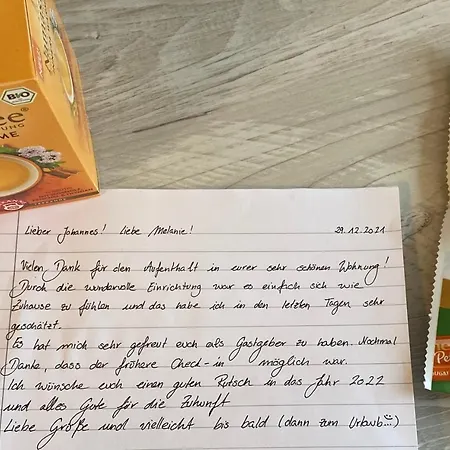 BIO
ee
UNG
ME
Lieber Johannes! Liebe Melanie! 29.12.2021
Vielen Dank für den Aufenthalt in eurer sehr schönen Wohnung!
Durch die wundervolle Einrichtung war es einfach sich wie
Zuhause zu fühlen und das habe ich in den letzten Tagen sehr
geschätzt.
Es hat mich sehr gefreut euch als Gastgeber zu haben. Nochmal
Danke, dass der frühere Check-in möglich war.
Ich wünsche euch einen guten Rutsch in das Jahr 2022
und alles Gute für die Zukunft
Liebe Grüße und vielleicht bis bald (dann zum Urlaub...)